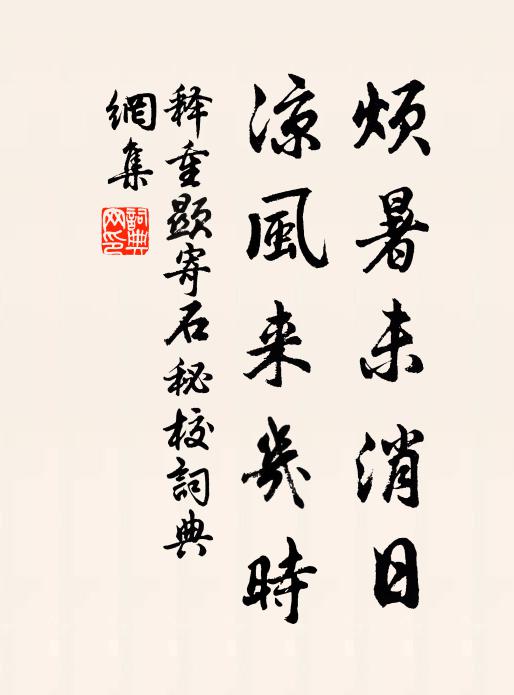 煩暑未消日
涼風来幾時
释重顯寄石秘校詞典
網集
詞典
网印